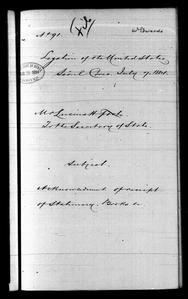 No 91.
Legation of the United States
Seoul Corea. July 9. 1884.
Mr Lucius H. Foote
To the Secretary of State.
Subject.
Acknowledgment of receipt
of Stationery, Books &c.